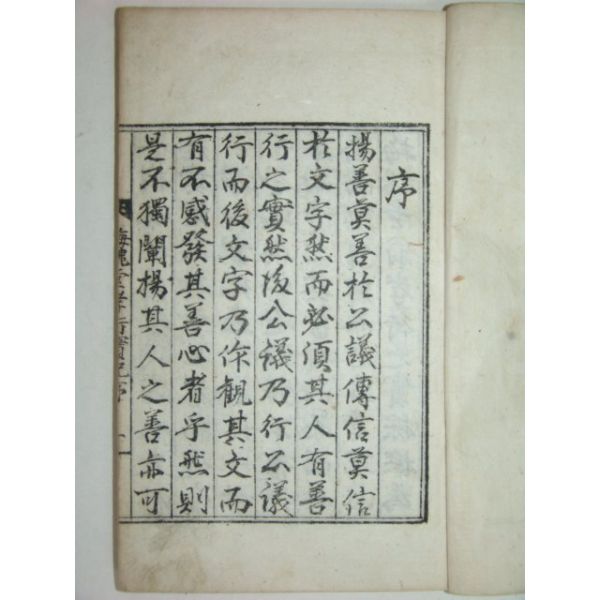 序
揚善莫善於公議傳信莫信
於文字然而必須其人有善
行之實然後公議乃行公議
行而後文字乃作觀其文而
有不感發其善心者乎然則
是不獨闡揚其人之善亦可
孝行實記序